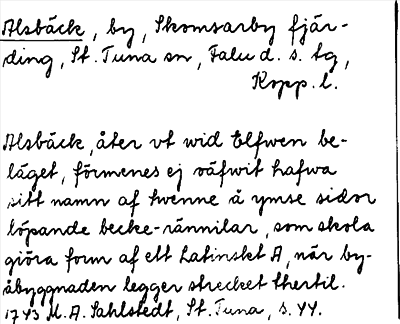 Alsbäck, by, Skomsarby fjär-
ding, St. Tuna sn, Falu d. s. tg,
Kopp. l.
Alsbäck, åter vt wid Elfwen be-
läget, förmenes ej oäfwit hafwa
sitt namn af twenne å ymse sidor
löpande becke-rännilar, som skola
giöra form af ett Latinskt A, när by-
åbyggnaden legger strecket thertil.
1743 M. A. Sahlstedt, St. Tuna, s. 44.